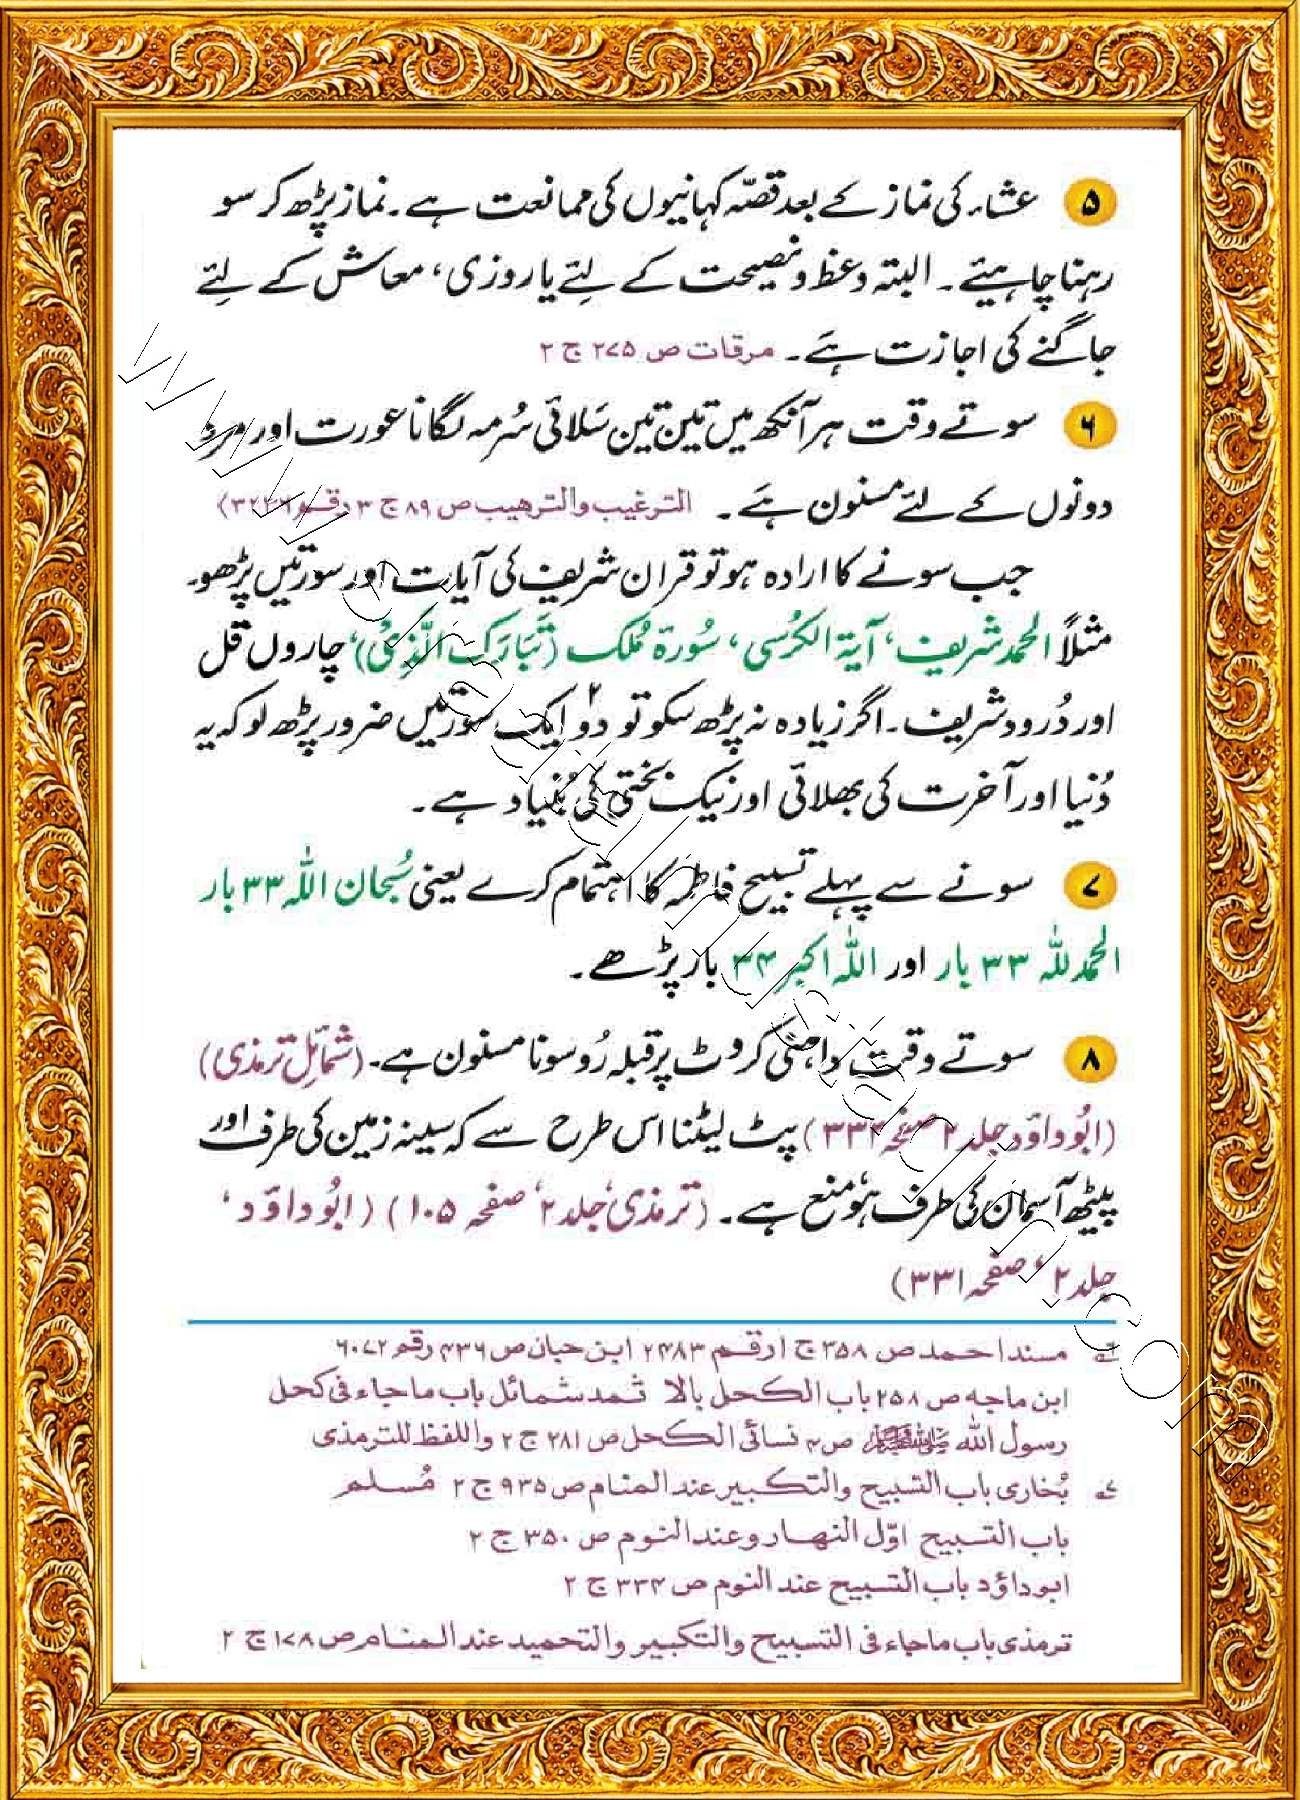 ۵ عشاء کی نماز کے بعد قصّہ کہانیوں کی ممانعت ہے۔ نماز پڑھ کر سو
رہنا چاہیئے۔ البتہ وعظ و نصیحت کے لئے یا روزی، معاش کے لئے
جاگنے کی اجازت ہے۔ مرقات ص ۲۷۵ ج ۲
۶ سوتے وقت ہر آنکھ میں تین تین سَلائی سُرمہ لگانا عورت اور مرد
دونوں کے لئے مسنون ہے۔ الترغیب والترھیب ص ۸۹ ج ۳ رقم
جب سونے کا ارادہ ہو تو قران شریف کی آیات اور سورتیں پڑھو۔
مثلاً الحمد شریف، آیة الکُرسی، سُورة مُلک (تَبَارَکَ الَّذِیْ)، چاروں قل
اور دُرود شریف۔ اگر زیادہ نہ پڑھ سکو تو دو ایک سورتیں ضرور پڑھ لو کہ یہ
دُنیا اور آخرت کی بھلائی اور نیک بختی کی بُنیاد ہے۔
۷ سونے سے پہلے تسبیح فاطمہ کا اہتمام کرے یعنی سُبحان اللہ ۳۳ بار
الحمد للہ ۳۳ بار اور اللہ اکبر ۳۴ بار پڑھے۔
۸ سوتے وقت داہنی کروٹ پر قبلہ رُو سونا مسنون ہے۔ (شمائل ترمذی)
(ابُو داؤد جلد ۲ صفحہ ۳۳۲) پٹ لیٹنا اس طرح سے کہ سینہ زمین کی طرف اور
پیٹھ آسمان کی طرف ہو، منع ہے۔ (ترمذی، جلد ۲، صفحہ ۱۰۵) (ابُو داؤد،
جلد ۲، صفحہ ۳۳۱)
۶ مسند احمد ص ۳۵۸ ج ۱ رقم ۲۴۸۳ ابن حبان ص ۴۳۶ رقم ۶۰۷۲
ابن ماجه ص ۲۵۸ باب الکحل بالاثمد شمائل باب ماجاء فی کحل
رسول الله ﷺ ص ۴ نسائی الکحل ص ۲۸۱ ج ۲ واللفظ للترمذی
۷ بُخاری باب التسبیح والتکبیر عند المنام ص ۹۳۵ ج ۲ مُسلم
باب التسبیح اوّل النهار وعند النوم ص ۳۵۰ ج ۲
ابوداؤد باب التسبیح عند النوم ص ۳۳۴ ج ۲
ترمذی باب ماجاء فی التسبیح والتکبیر والتحمید عند المنام ص ۱۷۸ ج ۲